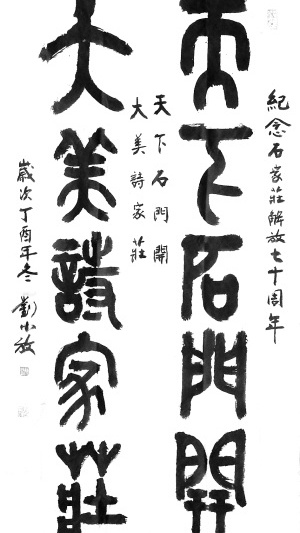 紀念石家莊解放七十周年
天下石門開
天下石門開
大美詩家莊
大美詩家莊
歲次丁酉年冬 劉小放